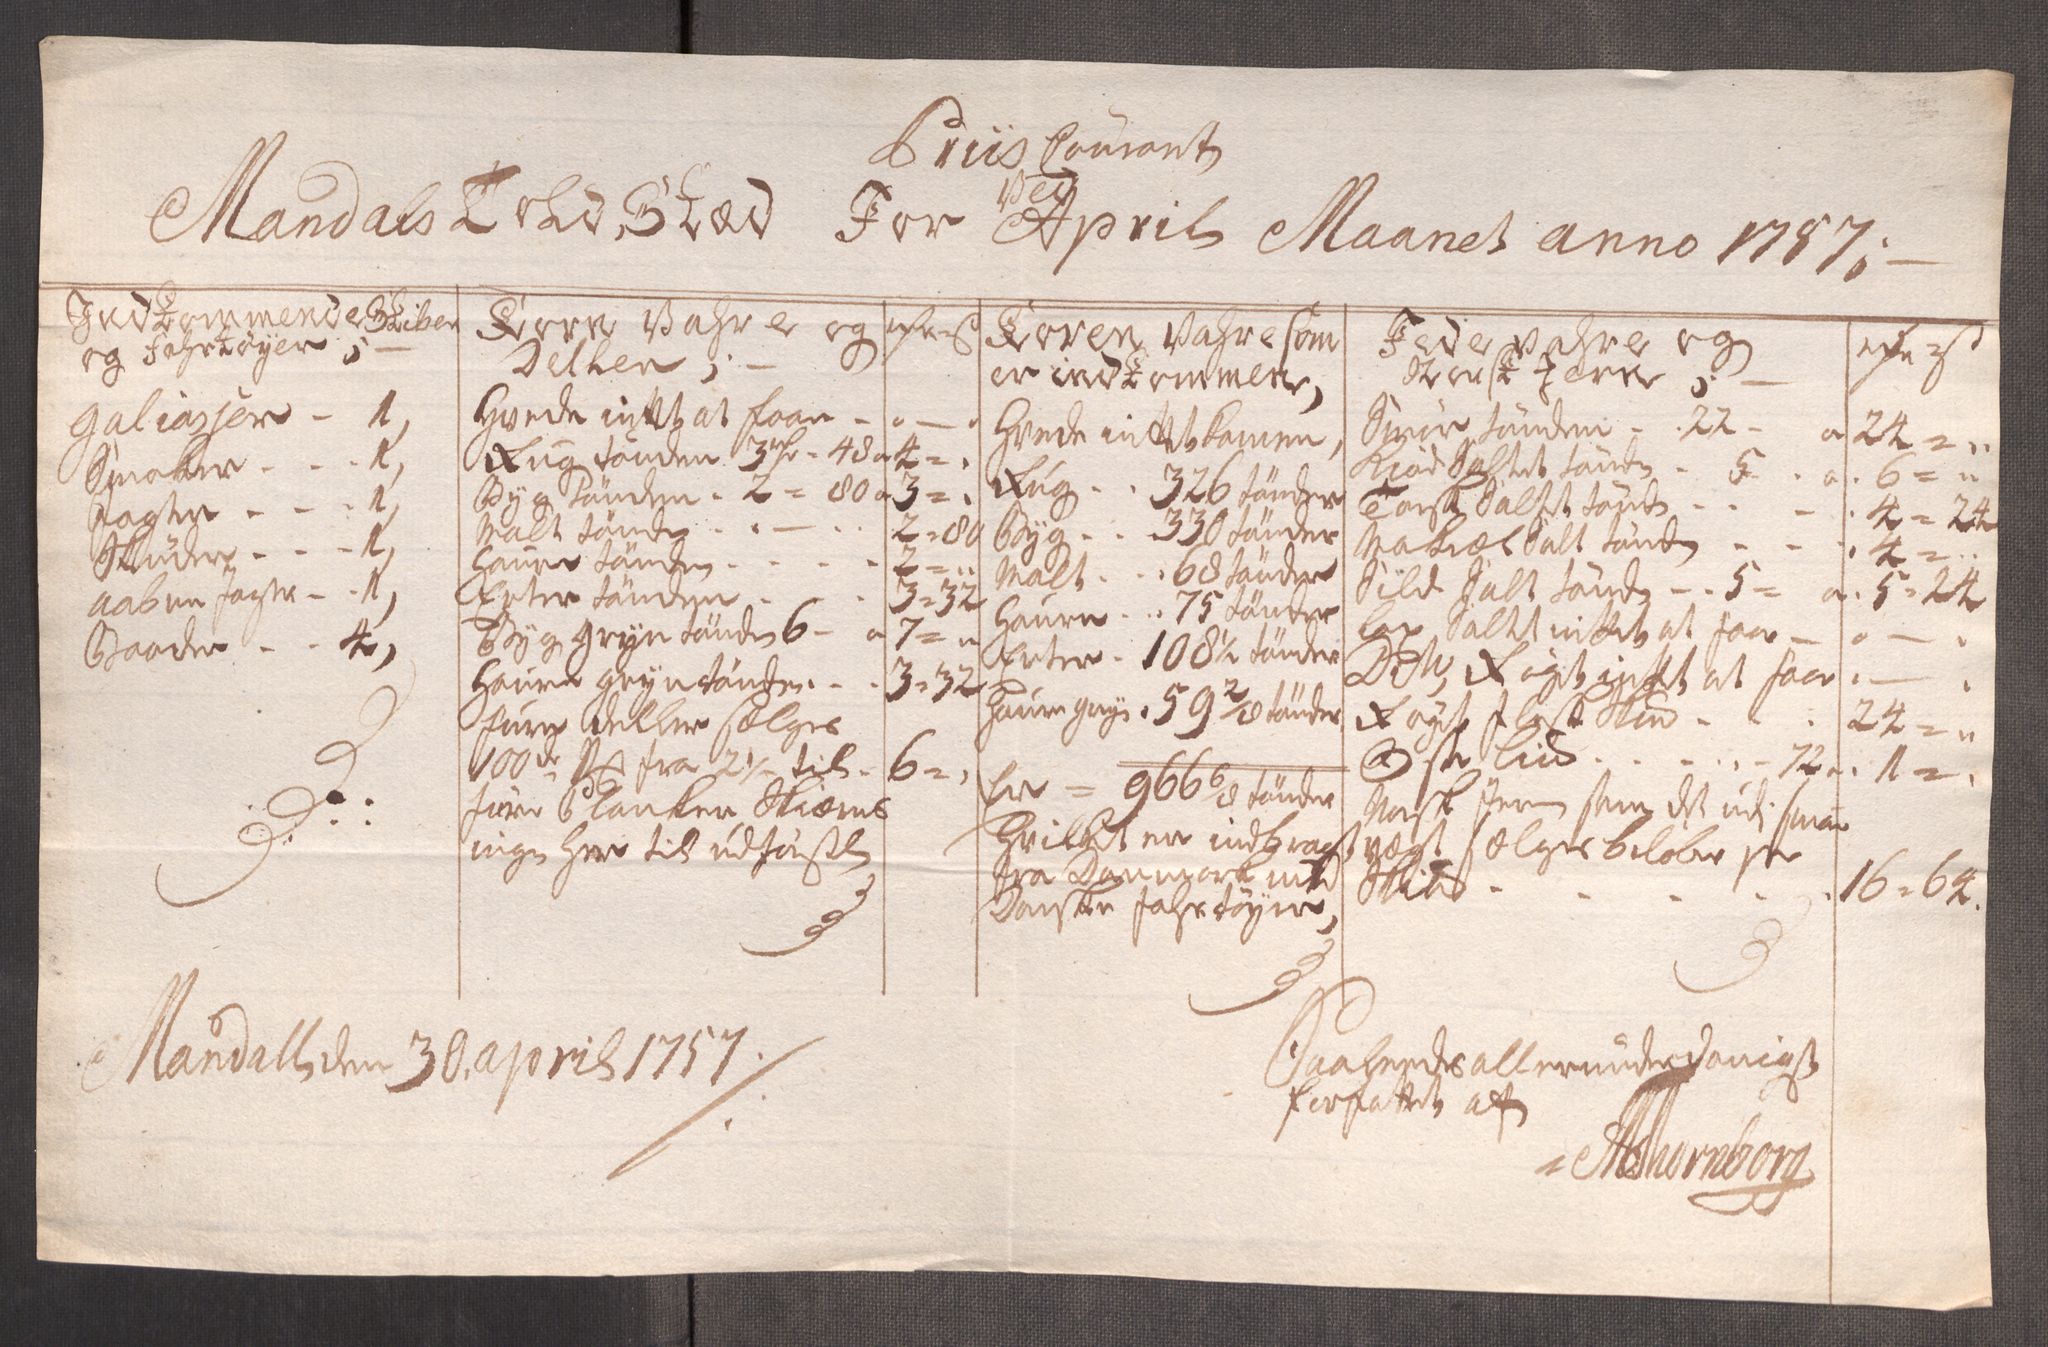 Priis Courant
Ved
Mandals Told Stæd For April Maanet anno 1757;
Indkommende Skiber
og Fahrtøyer;
galiasser - 1,
Smaker - - - 1,
Jagter - - - 1,
Skuder - - - 1,
aabne Jagter - - 1,
Baader - - 4,
Korn Vahre og
Deller;
Hvede intet at faae - " — "
Rug tønden 3 rdr - 48 a 4 = "
Byg tønden - 2 = 80 a 3 = "
Malt tønden - - - 2 = 80
Haure tønden - - - - 2 = "
Erter tønden - - - 3 = 32
Byg gryn tønden 6 - a 7 = "
Haure gryn tønden - - 3 = 32
furre deller sælges
100de fra 2 1/2 til - 6 = "
furre Planker Skieres
inge her til udførsel
Koren Vahre som
er indkommen,
Hvede intet komen,
Rug - - 326 tønder
Byg - - 330 tønder
Malt - - 68 tønder
Haure - - 75 tønder
Erter - 108 1/2 tønder
Haure gryn - 59 2/8 tønder
Er = 966 6/8 tønder
Hvilket er indbragt
fra Danmark med
Danske fahrtøyer,
Fede vahre og
Smør tønden - 22 - a 24 = "
Kiød Saltet tønden - 5 - a 6 = "
Torsk Saltet tønden - - - 4 = 24
Makrel Salt tønden - - - 4 = "
Sild Salt tønden - - 5 = a 5 = 24
Lax Saltet intet at faae - " — "
Dito Røget intet at faae - " — "
Røgt flesk - - - 24 = "
Oste - - - - 72 a 1 = "
Norsk Jern som det udi smaae
vægt sælges beløber per
- - - - 16 = 64.
Mandall den 30. april 1757.
Saaledes allerunderdanigst
forfattet af
Thornborg